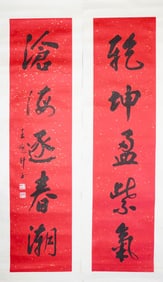 乾坤盈紫氣
滄海逐春潮